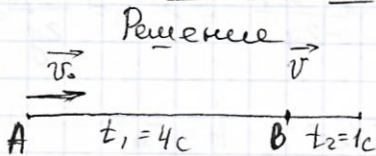 Решение
v₀ v
A t₁ = 4c B t₂ = 1c